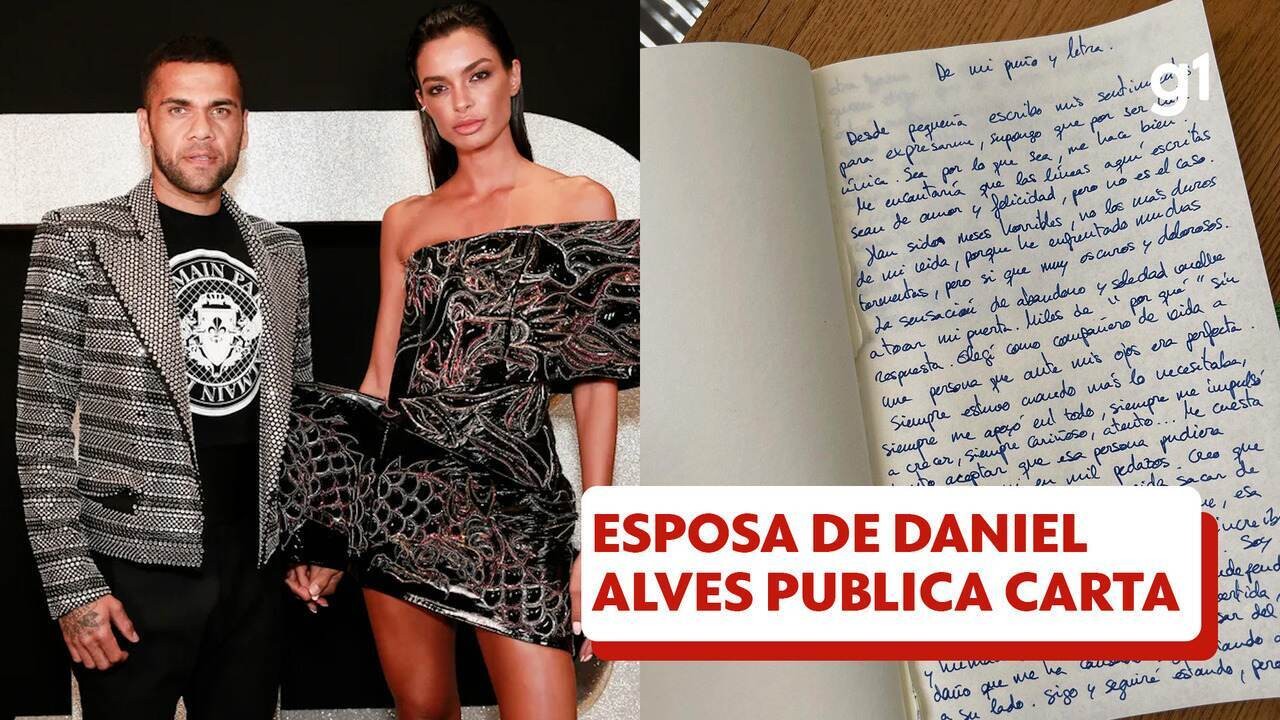 MAIN PA
MAIN
g1
De mi puño y letra.
Desde pequeña escribo mis sentimientos
para expresarme, supongo que por ser hija
única. Sea por lo que sea, me hace bien.
Me encantaría que las líneas aquí escritas
sean de amor y felicidad, pero no es el caso.
Han sido meses horribles, no los más duros
de mi vida, porque he enfrentado muchas
tormentas, pero si que muy oscuros y dolorosos.
La sensación de abandono y soledad vuelve
a tocar mi puerta. Miles de "por qué" sin
respuesta. Elegí como compañero de vida a
una persona que ante mis ojos era perfecta.
Siempre estuvo cuando más lo necesitaba,
siempre me apoyó en todo, siempre me impulsó
a crecer, siempre cariñoso, atento... Me cuesta
aceptar que esa persona pudiera
en mil pedazos. Creo que
sacar de
esa
Soy
ESPOSA DE DANIEL
ALVES PUBLICA CARTA
y
daño que me ha
a su lado. Sigo y seguiré estando, pero